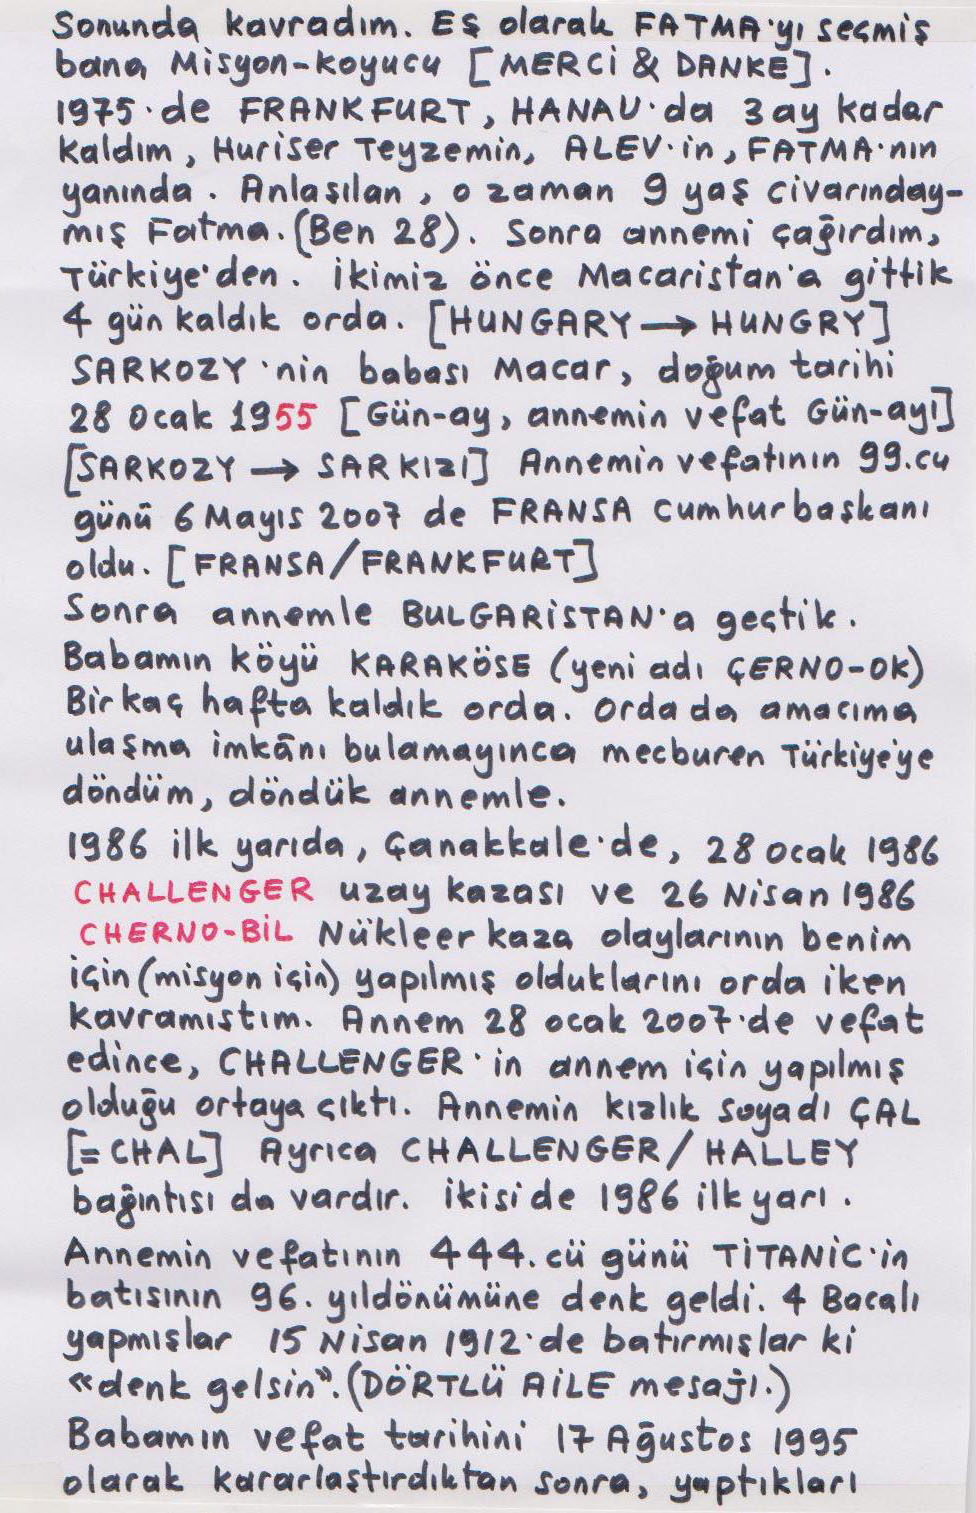 Sonunda kavradım. Eş olarak FATMA'yı seçmiş
bana Misyon-koyucu [MERCİ & DANKE].
1975'de FRANKFURT, HANAU'da 3 ay kadar
kaldım, Huriser Teyzemin, ALEV'in, FATMA'nın
yanında. Anlaşılan, o zaman 9 yaş civarınday-
mış Fatma. (Ben 28). Sonra annemi çağırdım,
Türkiye'den. İkimiz önce Macaristan'a gittik
4 gün kaldık orda. [HUNGARY → HUNGRY]
SARKOZY'nin babası Macar, doğum tarihi
28 Ocak 1955 [Gün-ay, annemin vefat Gün-ayı]
[SARKOZY → SARKIZI] Annemin vefatının 99.cu
günü 6 Mayıs 2007 de FRANSA Cumhurbaşkanı
oldu. [FRANSA/FRANKFURT]
Sonra annemle BULGARİSTAN'a geçtik.
Babamın köyü KARAKÖSE (yeni adı ÇERNO-OK)
Birkaç hafta kaldık orda. Orda da amacıma
ulaşma imkânı bulamayınca mecburen Türkiye'ye
döndüm, döndük annemle.
1986 ilk yarıda, Çanakkale'de, 28 Ocak 1986
CHALLENGER uzay kazası ve 26 Nisan 1986
CHERNO-BİL Nükleer kaza olaylarının benim
için (misyon için) yapılmış olduklarını orda iken
kavramıştım. Annem 28 ocak 2007'de vefat
edince, CHALLENGER'in annem için yapılmış
olduğu ortaya çıktı. Annemin kızlık soyadı ÇAL
[=CHAL] Ayrıca CHALLENGER/HALLEY
bağıntısı da vardır. İkisi de 1986 ilk yarı.
Annemin vefatının 444.cü günü TİTANİC'in
batışının 96. yıldönümüne denk geldi. 4 Bacalı
yapmışlar 15 Nisan 1912'de batırmışlar ki
«denk gelsin". (DÖRTLÜ AİLE mesajı.)
Babamın vefat tarihini 17 Ağustos 1995
olarak kararlaştırdıktan sonra, yaptıkları